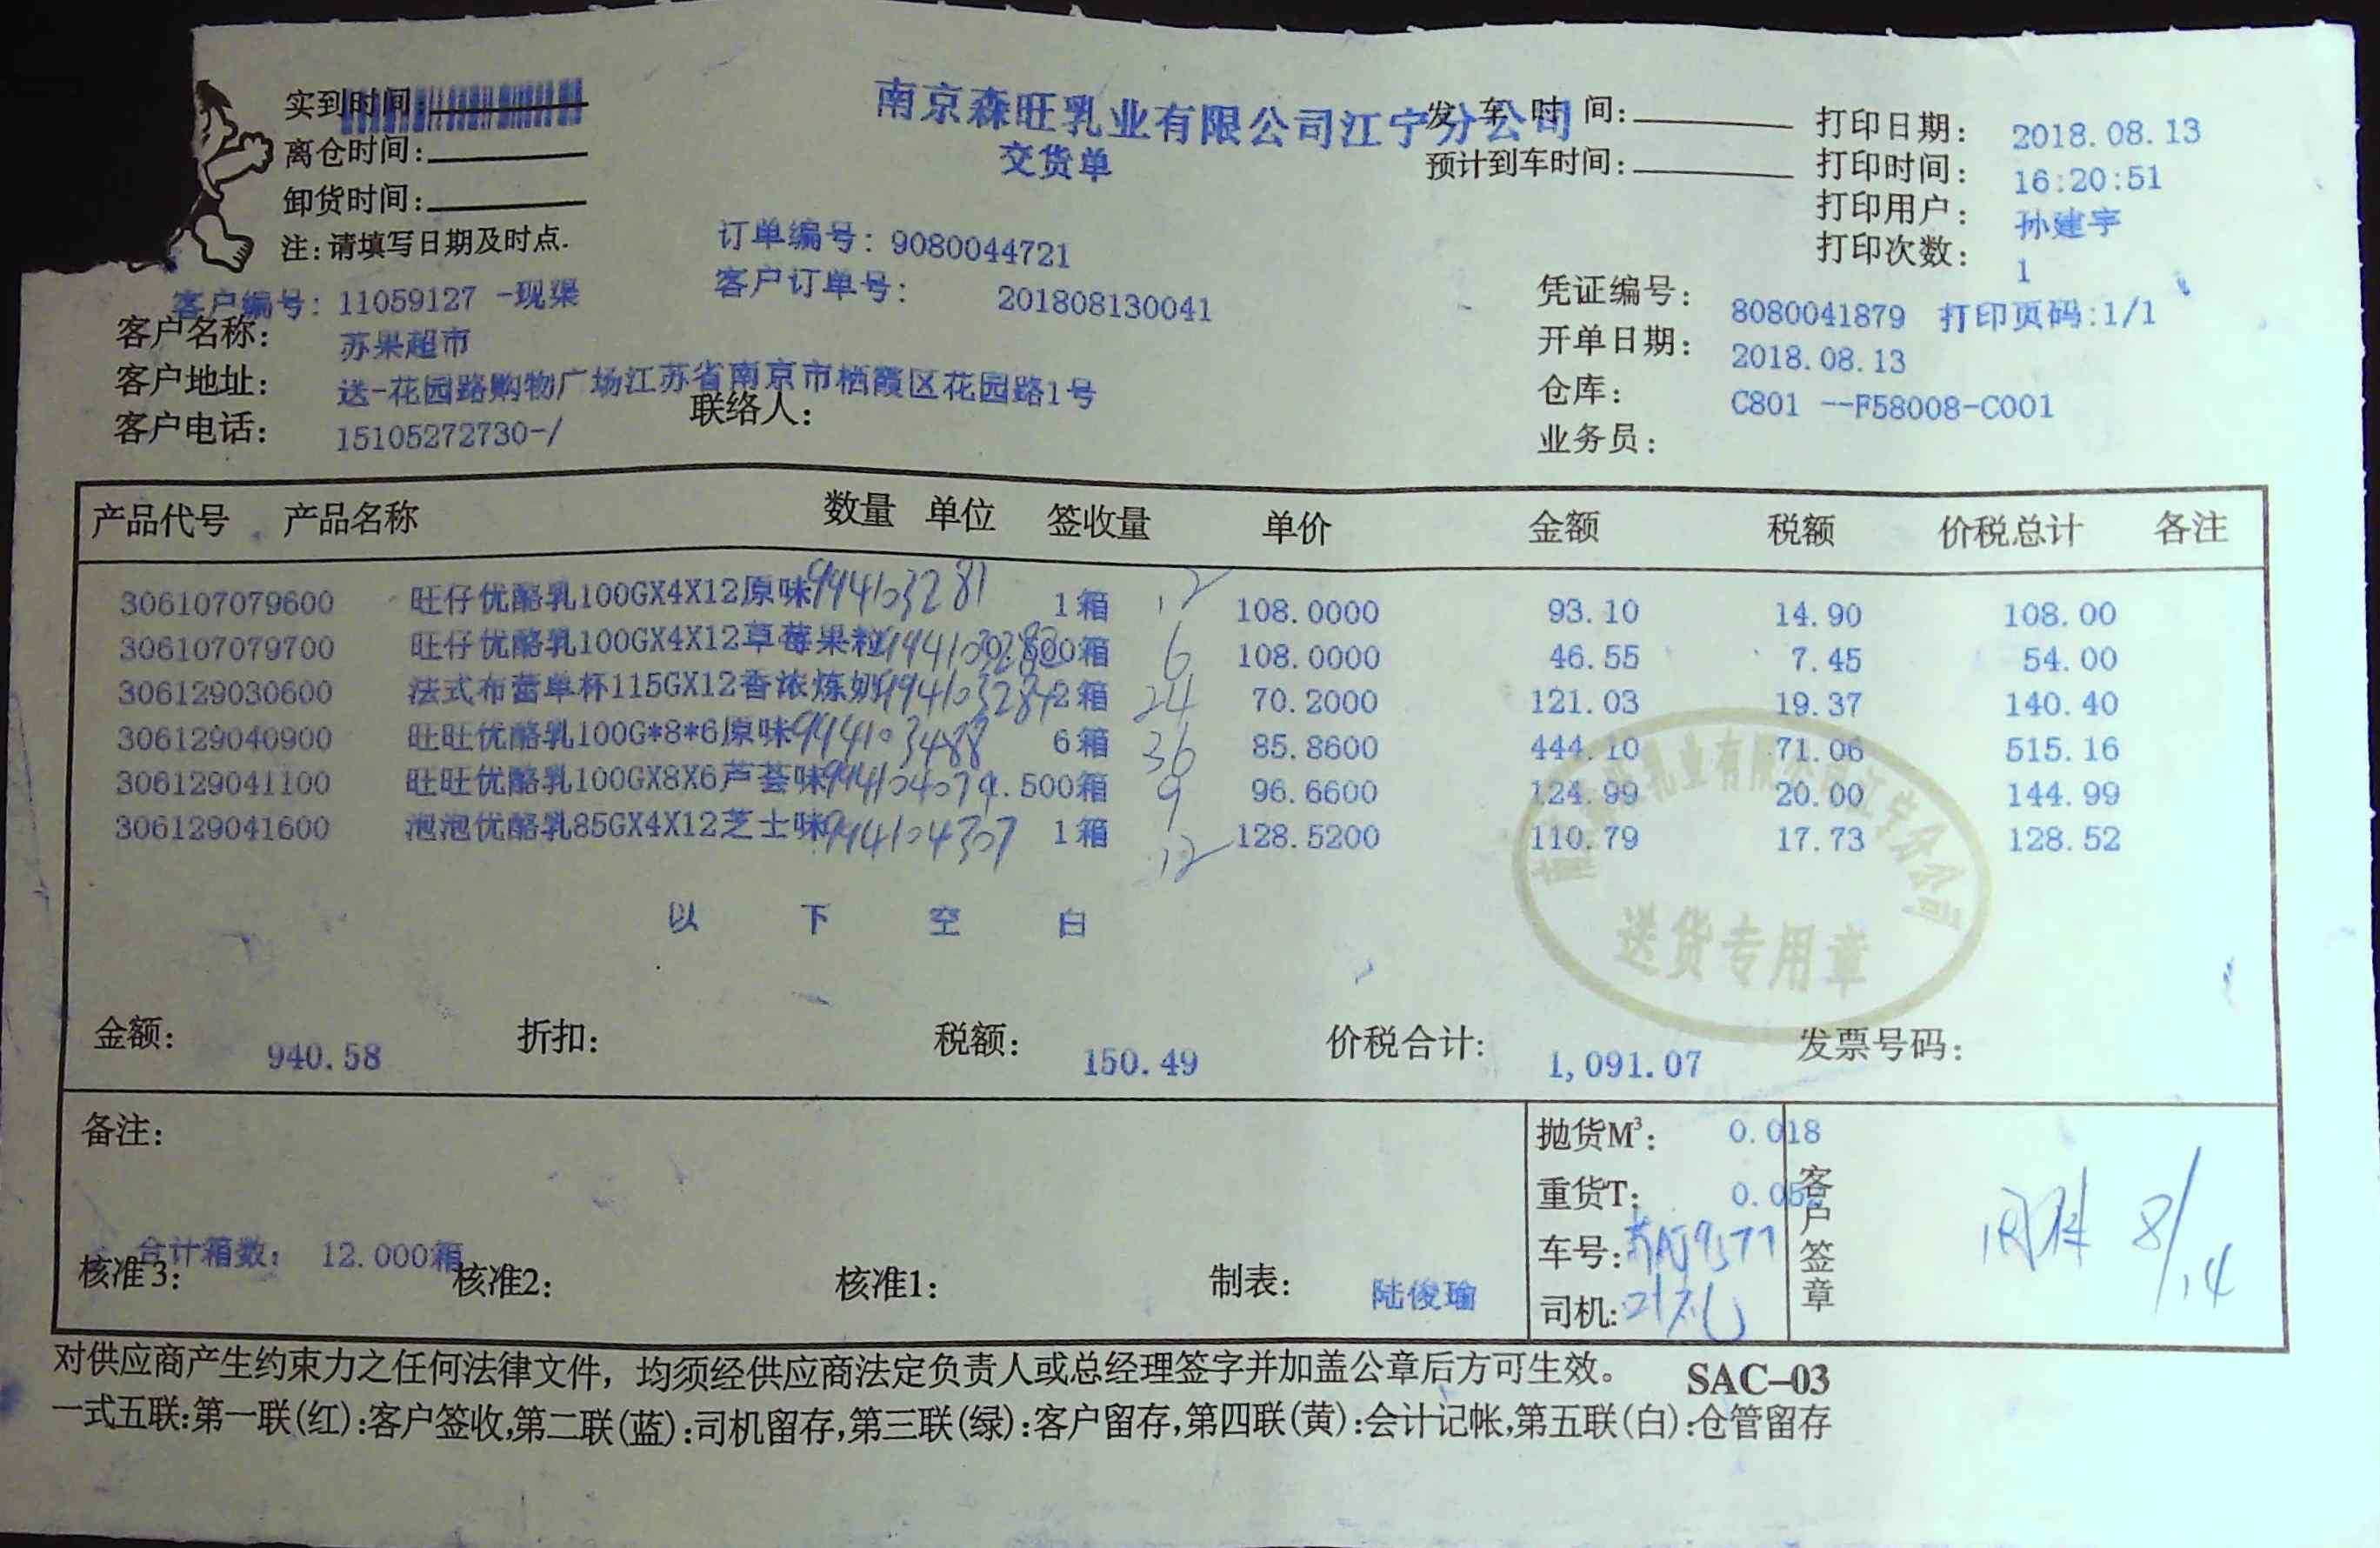 实到时间:
离仓时间:
卸货时间:
注:请填写日期及时点.
南京森旺乳业有限公司江宁分公司
交货单
发 车 时 间:
预计到车时间:
打印日期: 2018.08.13
打印时间: 16:20:51
打印用户: 孙建宇
打印次数: 1
订单编号: 9080044721
客户订单号: 201808130041
客户编号: 11059127 -现渠
客户名称: 苏果超市
客户地址: 送-花园路购物广场江苏省南京市栖霞区花园路1号
客户电话: 15105272730-/ 联络人:
凭证编号: 8080041879 打印页码:1/1
开单日期: 2018.08.13
仓库: C801 --F58008-C001
业务员:
产品代号 产品名称 数量 单位 签收量 单价 金额 税额 价税总计 各注
306107079600 旺仔优酪乳100GX4X12原味 994103281 1箱 12 108.0000 93.10 14.90 108.00
306107079700 旺仔优酪乳100GX4X12草莓果粒 箱 6 108.0000 46.55 7.45 54.00
306129030600 法式布蕾单杯115GX12香浓炼奶 2箱 24 70.2000 121.03 19.37 140.40
306129040900 旺旺优酪乳100G*8*6原味 994103488 6箱 36 85.8600 444.10 71.06 515.16
306129041100 旺旺优酪乳100GX8X6芦荟味 .500箱 9 96.6600 124.99 20.00 144.99
306129041600 泡泡优酪乳85GX4X12芝士味 994104307 1箱 12 128.5200 110.79 17.73 128.52
以 下 空 白
送货专用章
金额: 940.58 折扣: 税额: 150.49 价税合计: 1,091.07 发票号码:
备注:
合计箱数: 12.000箱
核准3: 核准2: 核准1: 制表: 陆俊瑜
抛货M³: 0.018
重货T:
车号:
司机:
客户签章
8/14
对供应商产生约束力之任何法律文件，均须经供应商法定负责人或总经理签字并加盖公章后方可生效。 SAC-03
一式五联:第一联(红):客户签收,第二联(蓝):司机留存,第三联(绿):客户留存,第四联(黄):会计记帐,第五联(白):仓管留存